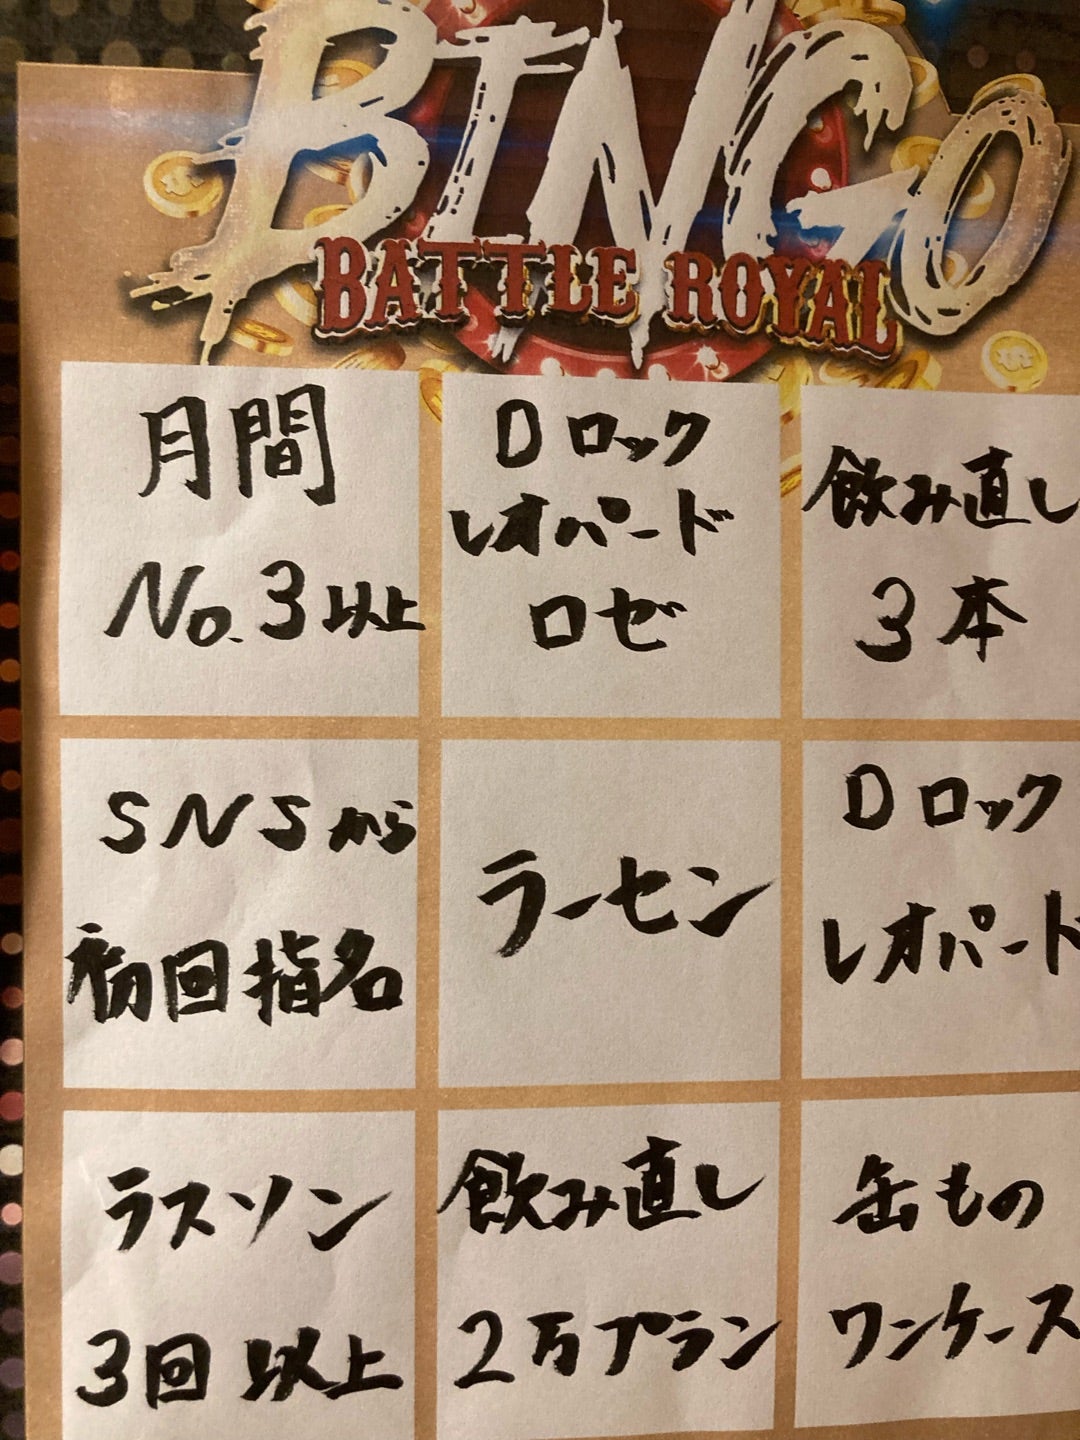 BINGO
BATTLE ROYAL
月間
No.3以上
Dロック
レオパード
ロゼ
飲み直し
3本
SNSから
初回指名
ラーセン
Dロック
レオパード
ラスソン
3回以上
飲み直し
2万プラン
缶もの
ワンケース